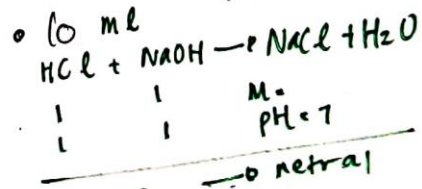 • 10 ml
HCl + NaOH → NaCl + H2O
1 1 M =
1 1 pH = 7
→ netral